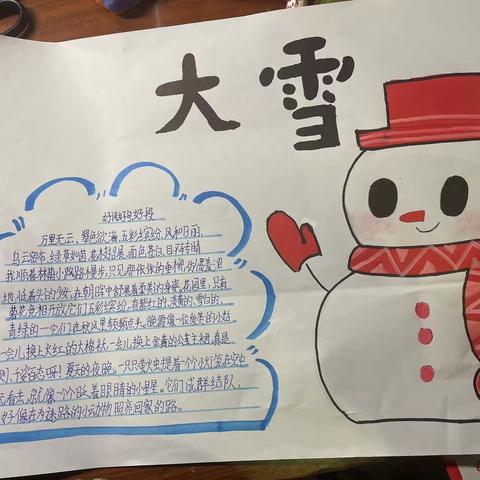 大雪
好词好句好段
万里无云、翠色欲滴、五彩缤纷、风和日丽、
乌云密布、绿草如茵、花枝招展、面色苍白、日天转晴
我顺着林荫小路踏步慢步,只见那依依的垂柳,好像羞涩
地低着头的少女,在朝晖中舒展着柔美的身姿。花园里,只有
菊花竞相开放,它们五彩缤纷,有鲜红的、淡黄的、雪白的、
青绿的……它们在秋风里频频点头。晚霞像一位爱美的小姑
一会儿换上火红的大棉袄,一会儿换上金黄的公主裙,真是
千姿百态呀!夏天的夜晚,一只只萤火虫提着个小灯笼在空中
远看去,就像一个个眨着眼睛的小星星。它们成群结队,
好像在为迷路的小动物照亮回家的路。